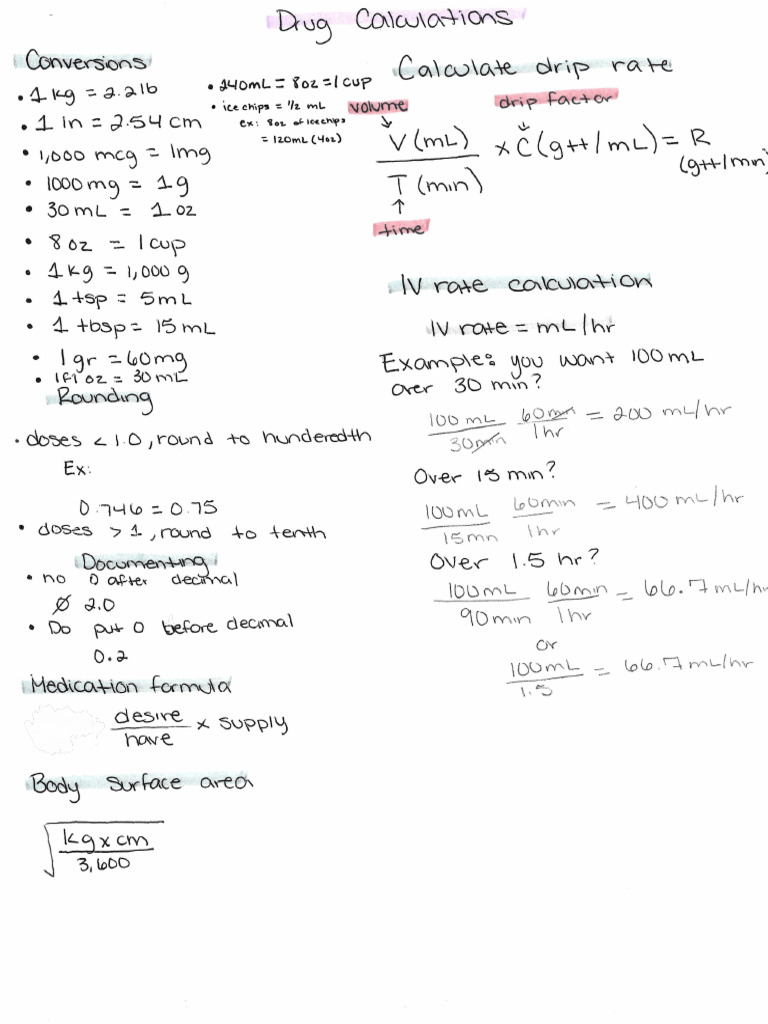 Drug Calculations
Conversions
• 1 kg = 2.2lb
• 1 in = 2.54 cm
• 1,000 mcg = 1mg
• 1000 mg = 1g
• 30 mL = 1 oz
• 8 oz = 1 cup
• 1 kg = 1,000 g
• 1 tsp = 5mL
• 1 tbsp = 15 mL
• 1 gr = 60mg
• 1 fl oz = 30 mL
• 240mL = 8oz = 1 cup
• ice chips = 1/2 mL
ex: 8oz of ice chips
= 120mL (4oz)
Rounding
• doses < 1.0, round to hunderedth
Ex:
0.746 = 0.75
• doses > 1, round to tenth
Documenting
• no 0 after decimal
∅ 2.0
• Do put 0 before decimal
0.2
Medication formula
desire
have
x supply
Body surface area
√ kg x cm
3,600
Calculate drip rate
volume
drip factor
V (mL)
T (min)
x C (gtt/mL) = R
(gtt/min)
time
IV rate calculation
IV rate = mL/hr
Example: you want 100 mL
over 30 min?
100 mL 60min = 200 mL/hr
30min 1hr
Over 15 min?
100mL 60min = 400 mL/hr
15mn 1hr
Over 1.5 hr?
100mL 60min = 66.7 mL/hr
90min 1hr
or
100mL = 66.7 mL/hr
1.5